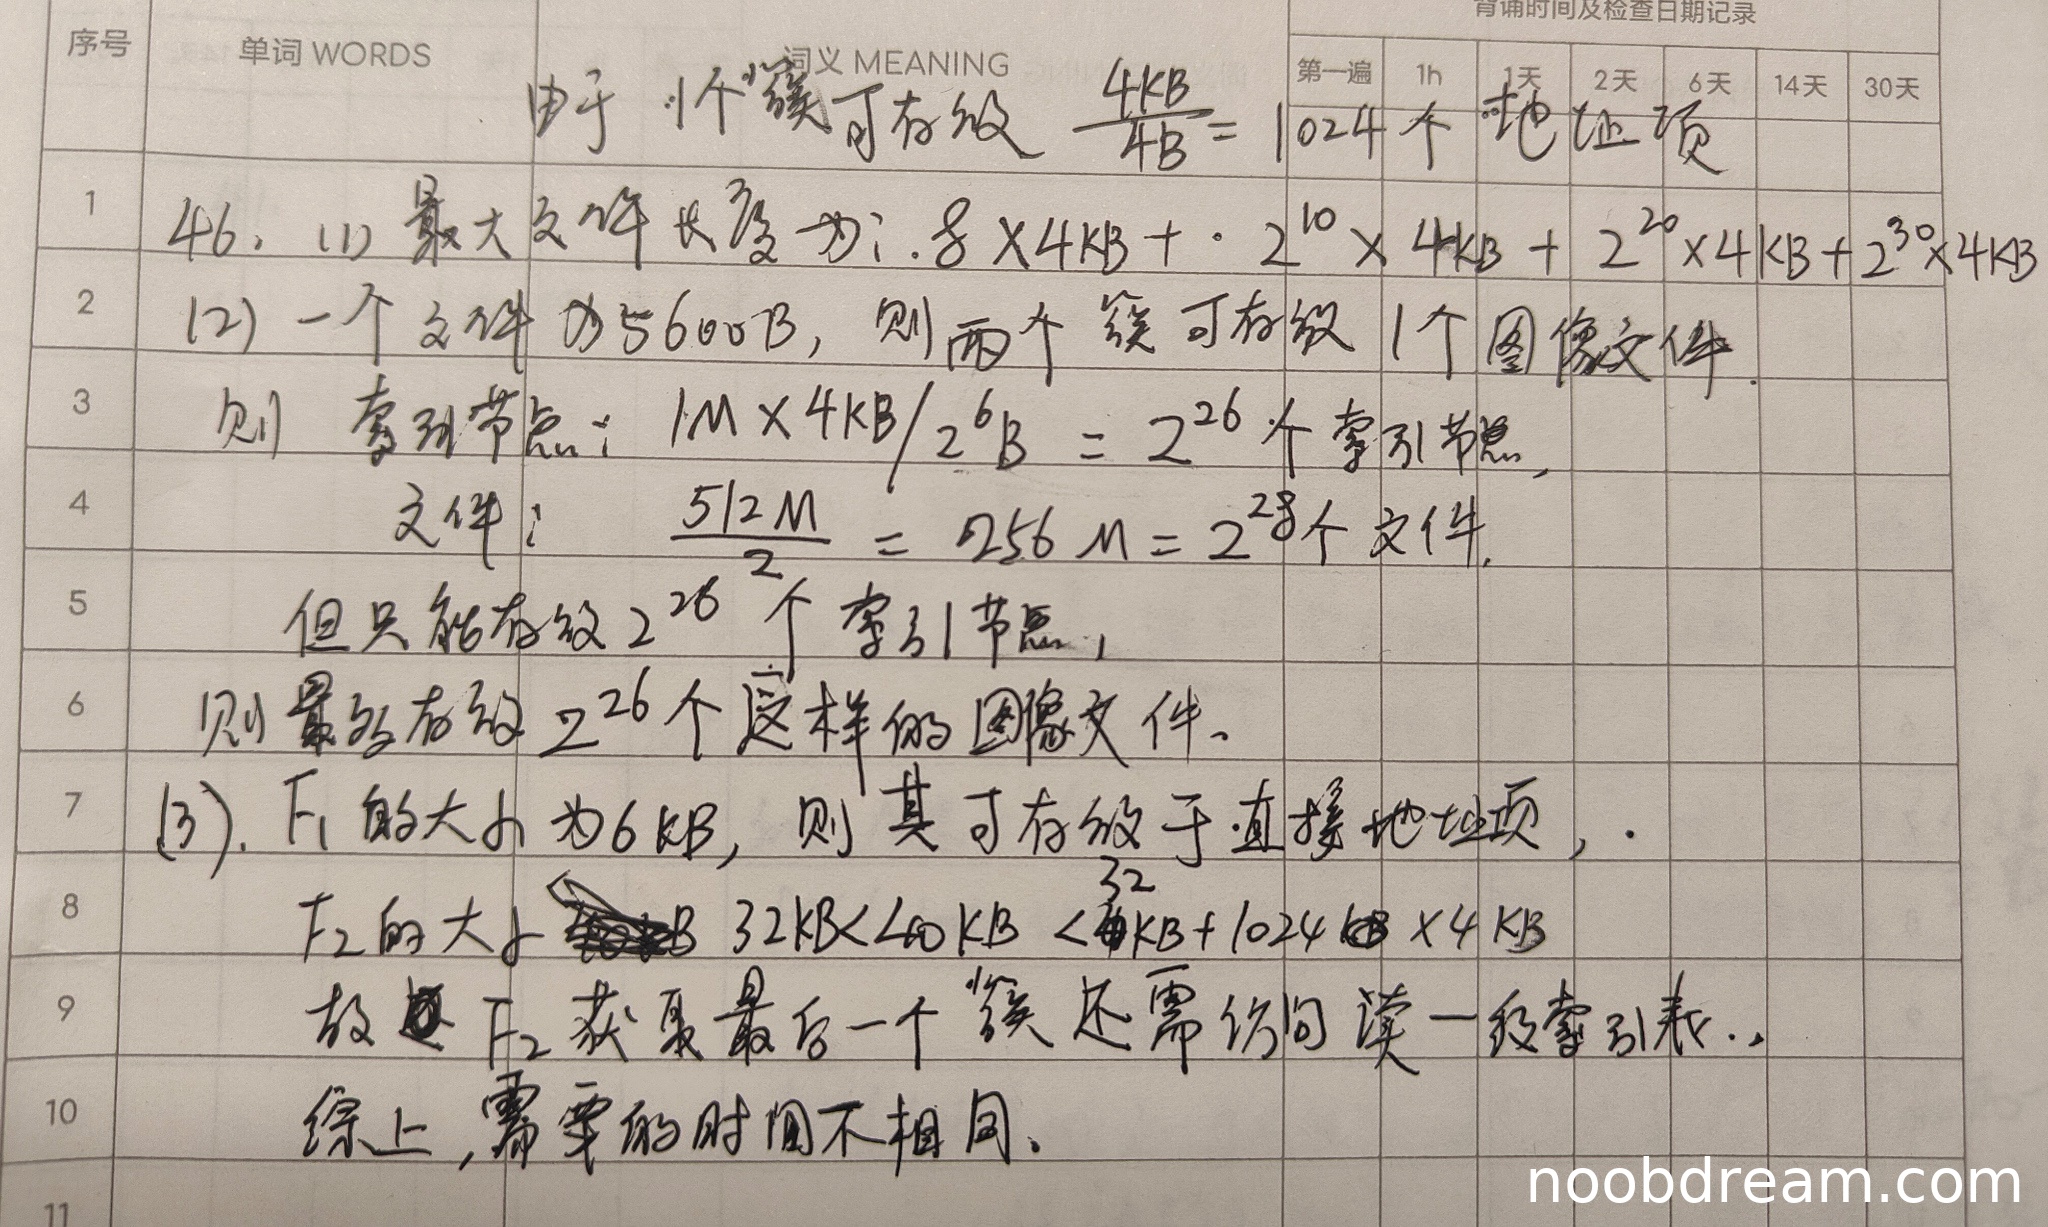 背诵时间及检查日期记录
序号 单词 WORDS 词义 MEANING 第一遍 1h 1天 2天 6天 14天 30天
由于 1个簇可存放 4KB/4B = 1024个地址项
1 46. (1) 最大文件长度为: 8×4KB + 2^10 × 4KB + 2^20 ×4KB + 2^30×4KB
2 (2) 一个文件为5600B, 则两个簇可存放1个图像文件.
3 则 索引节点: 1M×4KB/2^6B = 2^26个索引节点,
4 文件: 512M/2 = 256M = 2^28个文件.
5 但只能存放2^26个索引节点,
6 则最多存放2^26个这样的图像文件.
7 (3). F1的大小为6KB, 则其可存放于直接地址项,
8 F2的大小 32KB<40KB <32KB+1024×4KB
9 故F2获取最后一个簇还需访问读一级索引表.,
10 综上,需要的时间不相同.
11
noobdream.com